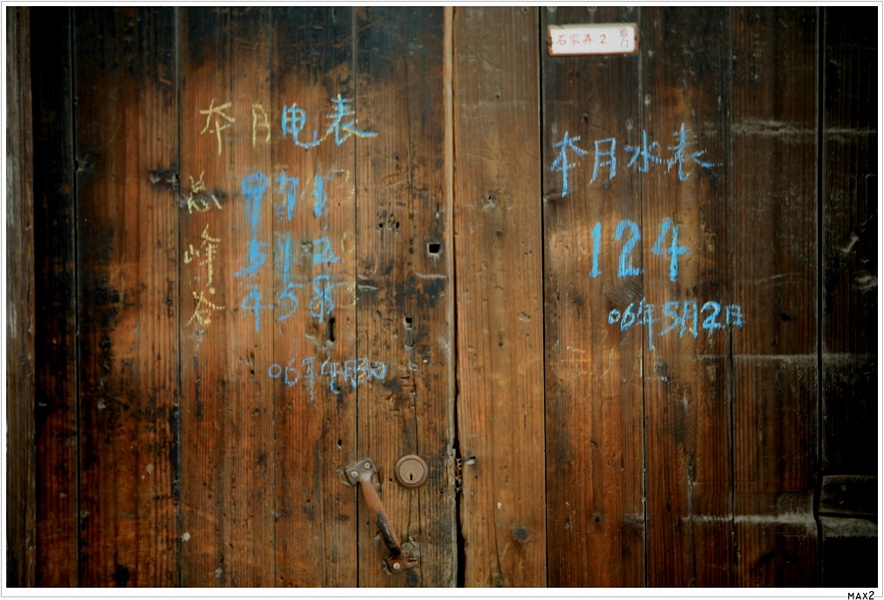 石家弄 2 后门
本月电表
总 971
峰 512
谷 458
06年4月30
本月水表
124
06年5月2日
MAX2